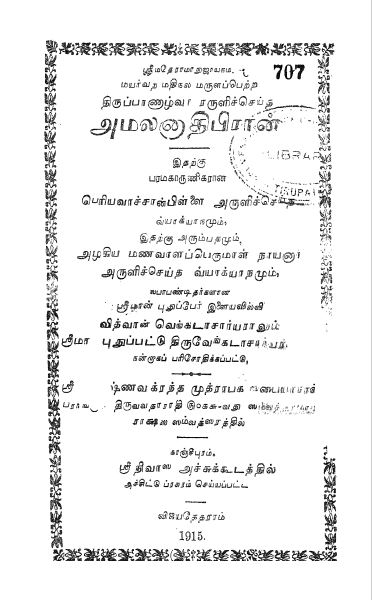 ஸ்ரீமதேராமாநுஜாயநம.
707
மயர்வற மதிநல மருளப்பெற்ற
திருப்பாணாழ்வா ரருளிச்செய்த
அமலனாதிபிரான்
LIBRAR
TIRUPA
இதற்கு
பரமகாருணிகரான
பெரியவாச்சான்பிள்ளை அருளிச்செய்த
வ்யாக்யாநமும்,
இதற்கு அரும்பதமும்,
அழகிய மணவாளப்பெருமாள் நாயனார்
அருளிச்செய்த வ்யாக்யாநமும்,
ஸ்ரீமான் புதுப்பேர் இளையவில்லி
வித்வான் வெங்கடாசார்யராலும்
ஸ்ரீமா புதுப்பட்டு திருவேங்கடாசார்
நன்றாகப் பரிசோதிக்கப்பட்டு,
ஸ்ரீ ஷ்ணவக்ரந்த முத்ராபக
திருவவதாராதி
ராக்ஷஸ ஸம்வத்ஸரத்தில்
காஞ்சீபுரம்.
ஸ்ரீநிவாஸ அச்சுக்கூடத்தில்
அச்சிட்டு ப்ரசுரம் செய்யப்பட்ட
விஜயதேதராம்
1915.